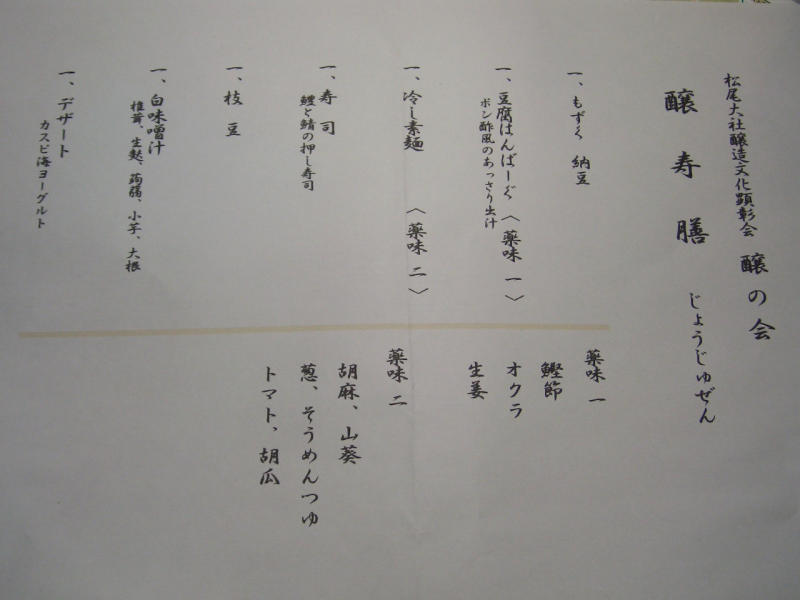 松尾大社醸造文化顕彰会 醸の会
醸寿膳 じょうじゅぜん
一、もずく 納豆
一、豆腐はんばーぐ〈薬味 一〉
ポン酢風のあっさり出汁
一、冷し素麺 〈薬味 二〉
一、寿司
鱧と鯖の押し寿司
一、枝豆
一、白味噌汁
椎茸、生麩、蒟蒻、小芋、大根
一、デザート
カスピ海ヨーグルト
薬味 一
鰹節
オクラ
生姜
薬味 二
胡麻、山葵
葱、そうめんつゆ
トマト、胡瓜